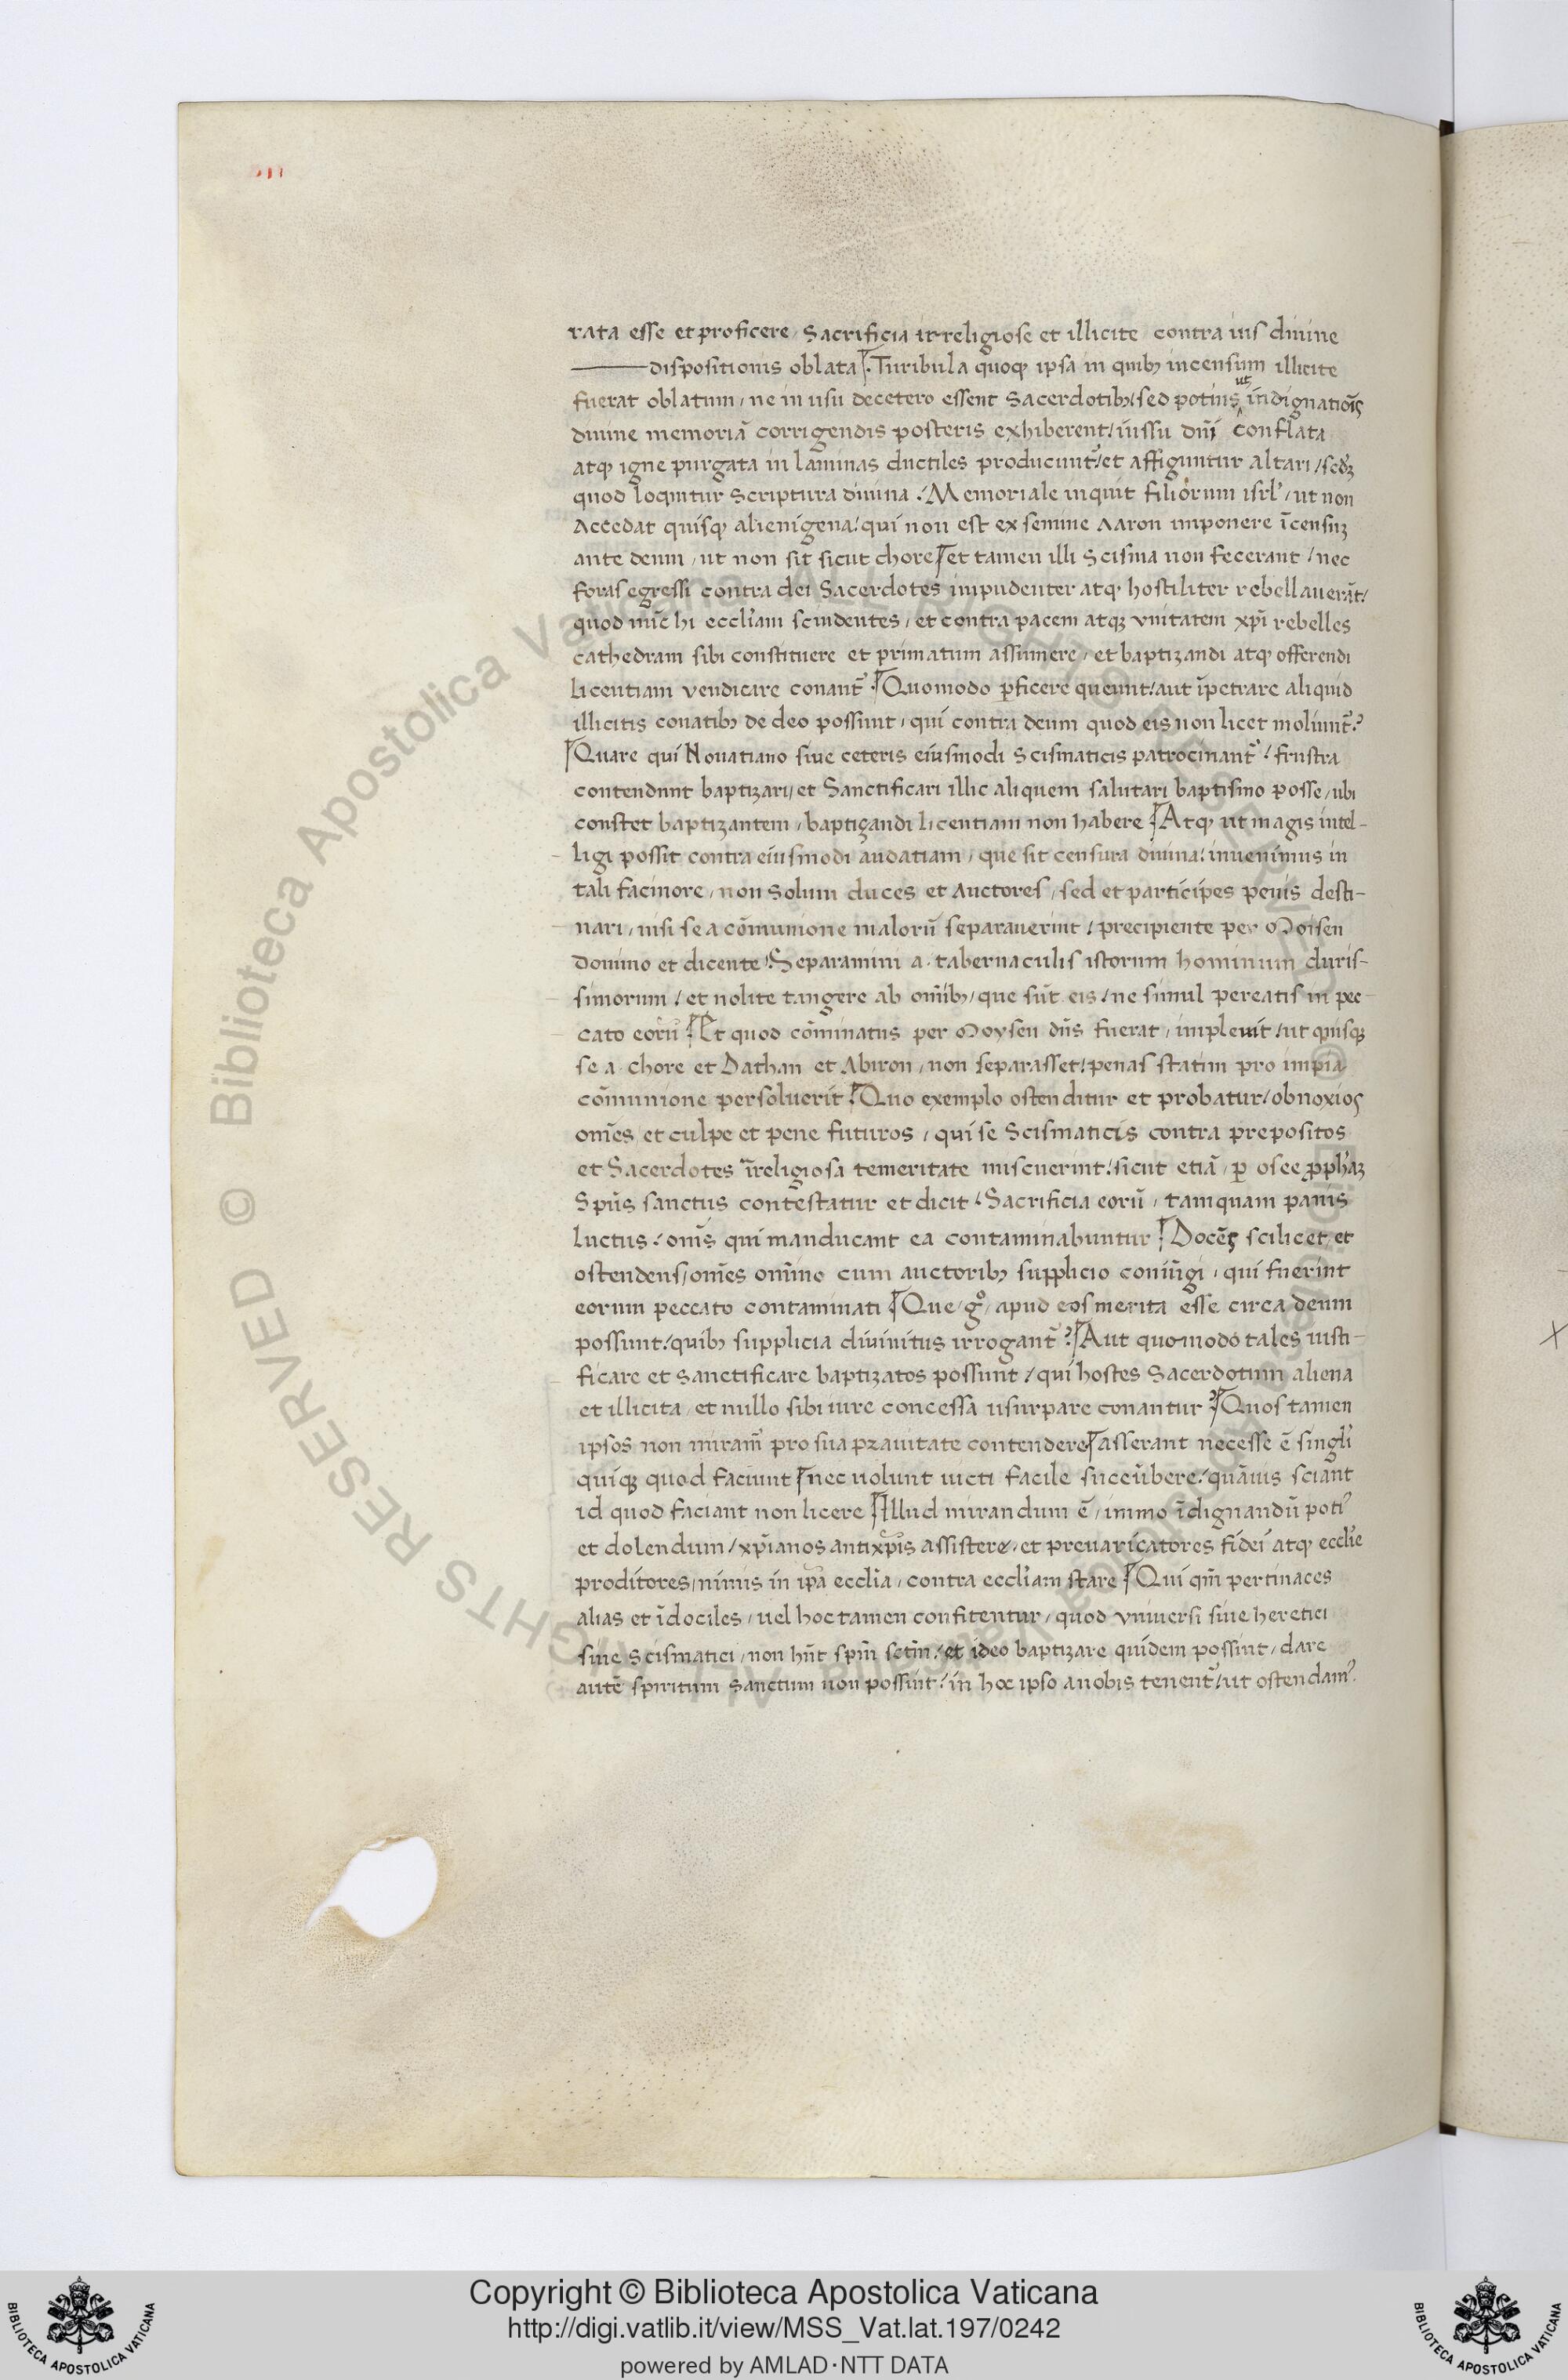 rata esse et proficere, Sacrificia irreligiose et illicite contra ius diuine
dispositionis oblata. Turibula quoqꝫ ipsa in quibꝫ incensum illicite
fuerat oblatum, ne in usu decetero essent Sacerdotibꝫ, sed potius ut ĩdignatiõis
diuine memoriã corrigendis posteris exhiberent, iussu dñi conflata
atqꝫ igne purgata in laminas ductiles producunt᷑, et affiguntur altari, scdꝫ
quod loquitur scriptura diuina. Memoriale inquit filiorum isrl̃, ut non
Accedat quisqꝫ alienigena, qui non est ex semine Aaron imponere ĩcensuꝫ
ante deum, ut non sit sicut chore. et tamen illi Scisma non fecerant, nec
foras egressi contra dei Sacerdotes impudenter atqꝫ hostiliter rebellauerãt,
quod nũc hi eccl̃iam scindentes, et contra pacem atqꝫ vnitatem xp̃i rebelles
cathedram sibi constituere et primatum assumere, et baptizandi atqꝫ offerendi
licentiam vendicare conant᷑. Quomodo ꝑficere queunt, aut ĩpetrare aliquid
illicitis conatibꝫ de deo possunt, qui contra deum quod eis non licet moliunt᷑?
Quare qui Nouatiano siue ceteris eiusmodi Scismaticis patrocinant᷑, frustra
contendunt baptizari, et Sanctificari illic aliquem salutari baptismo posse, ubi
constet baptizantem, baptiçandi licentiam non habere. Atqꝫ ut magis intel-
ligi possit contra eiusmodi audatiam, que sit censura diuina, inuenimus in
tali facinore, non solum duces et Auctores, sed et participes penis desti-
nari, nisi se a cõmunione malorũ separauerint, precipiente per Moisen
domino et dicente. Separamini a tabernaculis istorum hominum duris-
simorum, et nolite tangere ab omĩbꝫ, que sũt eis, ne simul pereatis in pec-
cato eorũ. Et quod cõminatus per Moysen dñs fuerat, impleuit, ut quisqꝫ
se a chore et Dathan et Abiron, non separasset, penas statim pro impia
cõmunione persoluerit. Quo exemplo ostenditur et probatur, obnoxios
om̃es et culpe et pene futuros, qui se Scismaticis contra prepositos
et Sacerdotes ĩreligiosa temeritate miscuerint, sicut etiã ꝑ osee ꝓph̃aꝫ
Spũs sanctus contestatur et dicit. Sacrificia eorũ, tamquam panis
luctus, om̃s qui manducant ea contaminabuntur. Docẽs scilicet, et
ostendens, om̃es om̃ino cum auctoribꝫ supplicio coniũgi, qui fuerint
eorum peccato contaminati. Que gͦ, apud eos merita esse circa deum
possunt, quibꝫ supplicia diuinitus irrogant᷑? Aut quomodo tales iusti-
ficare et sanctificare baptizatos possunt, qui hostes Sacerdotum aliena
et illicita, et nullo sibi iure concessa usurpare conantur? Quos tamen
ipsos non miram᷑ pro sua prauitate contendere. asserant necesse ẽ singl̃i
quiqꝫ quod faciunt. nec uolunt uicti facile succũbere, quãuis sciant
id quod faciant non licere. Illud mirandum ẽ, immo ĩdignandũ poti᷒
et dolendum, xp̃ianos antixp̃is assistere, et preuaricatores fidei atqꝫ eccl̃ie
proditores, nimis in ip̃a eccl̃ia, contra eccl̃iam stare. Qui qm̃ pertinaces
alias et ĩdociles, uel hoc tamen confitentur, quod vniuersi siue heretici
siue Scismatici, non hñt spm̃ sctm̃, et ideo baptizare quidem possint, dare
autẽ spiritum sanctum non possint, in hoc ipso a nobis tenent᷑, ut ostendam᷒
Copyright © Biblioteca Apostolica Vaticana
http://digi.vatlib.it/view/MSS_Vat.lat.197/0242
powered by AMLAD·NTT DATA
BIBLIOTECA APOSTOLICA VATICANA
BIBLIOTECA APOSTOLICA VATICANA
© Biblioteca Apostolica Vaticana ALL RIGHTS RESERVED